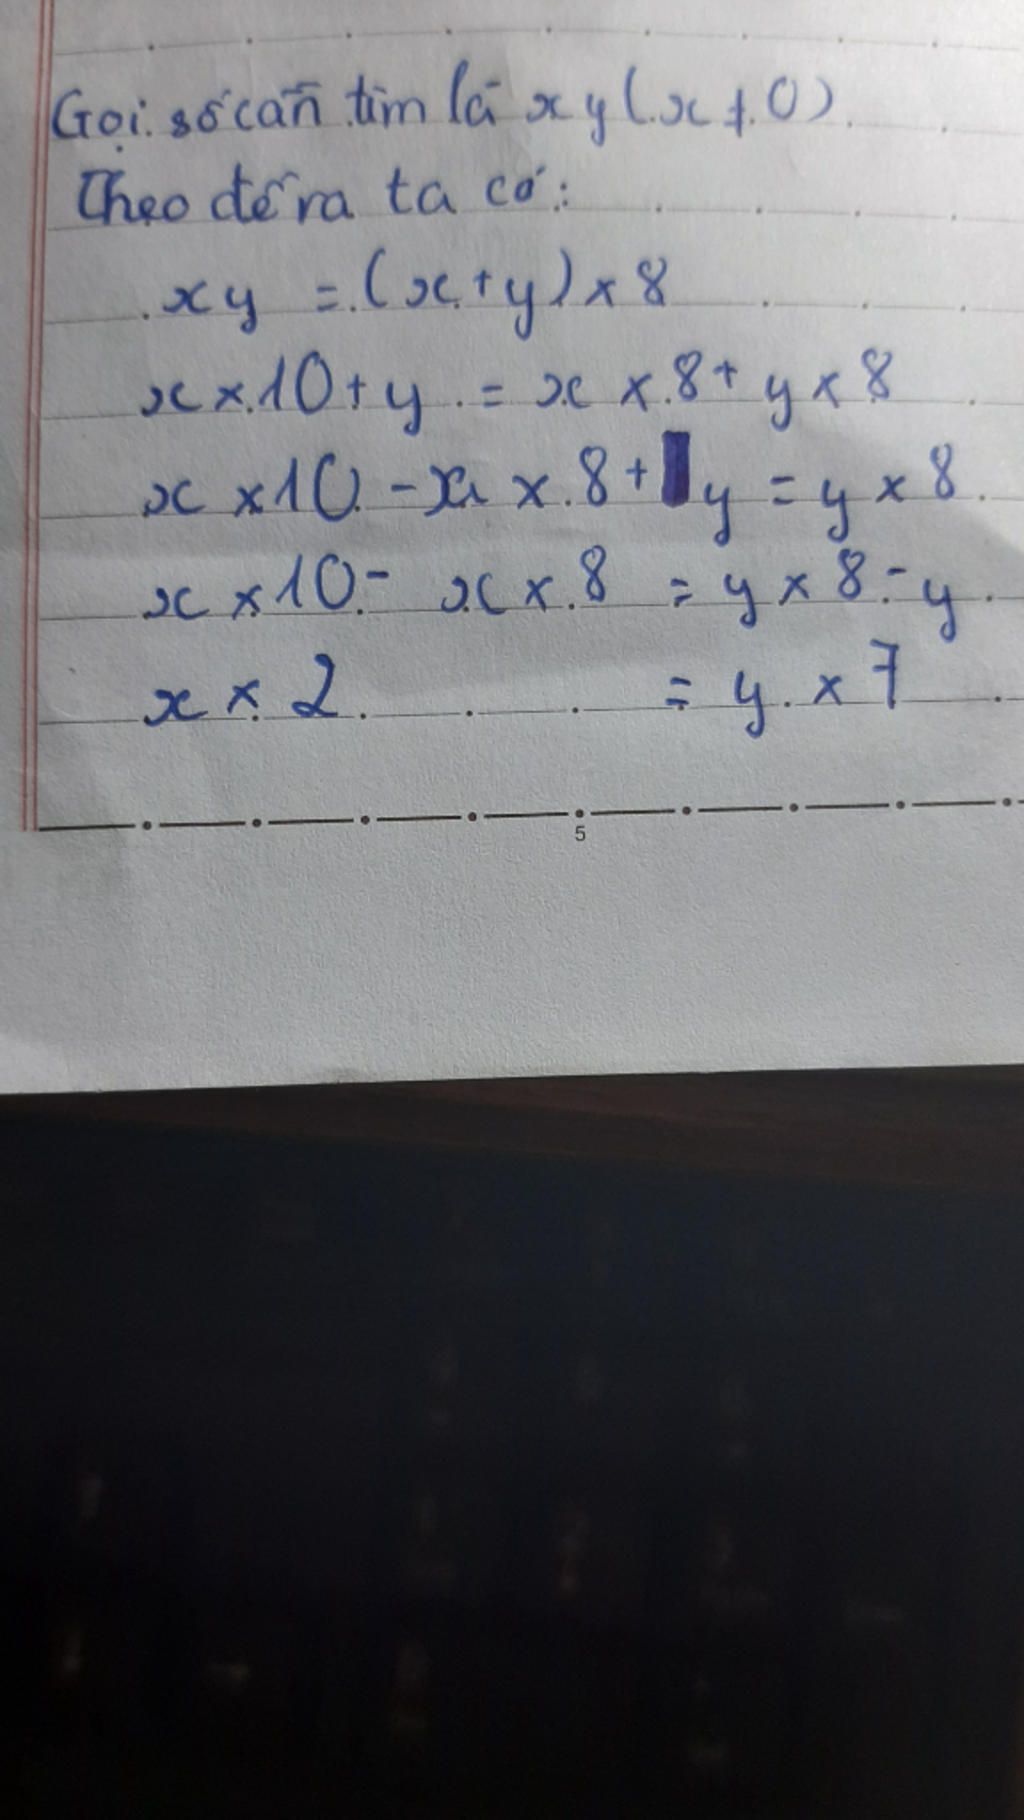 Gọi số cần tìm là xy (x ≠ 0)
Theo đề ra ta có:
xy = (x + y) × 8
x × 10 + y = x × 8 + y × 8
x × 10 - x × 8 + y = y × 8
x × 10 - x × 8 = y × 8 - y
x × 2 = y × 7
5